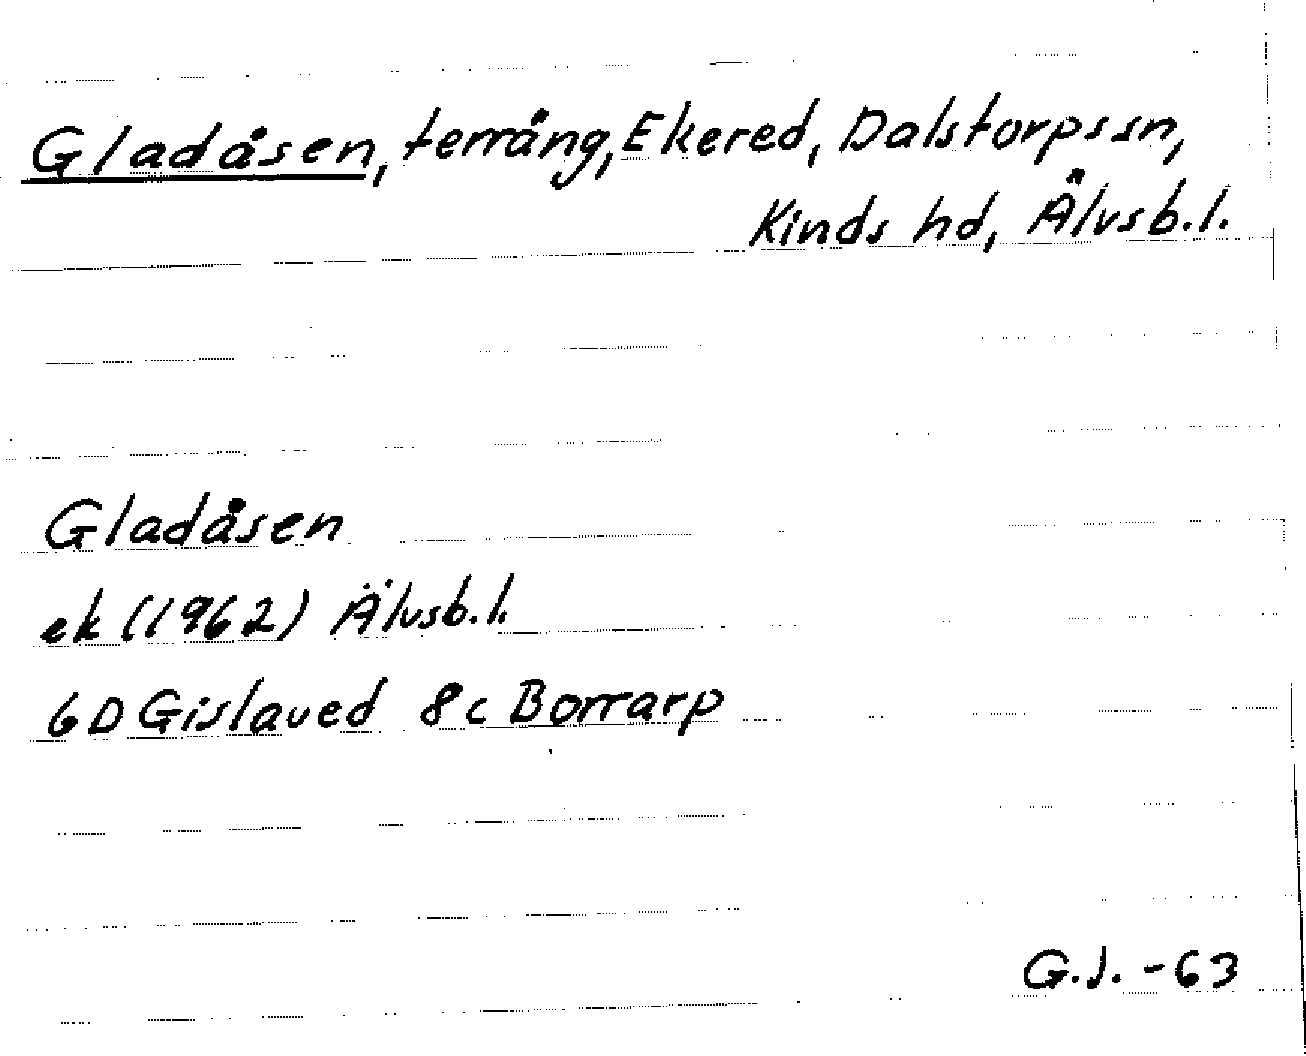 Gladåsen, terräng, Ekered, Dalstorps sn,
Kinds hd, Älvsb.l.
Gladåsen
ek (1962) Älvsb.l.
6D Gislaved 8c Borrarp
G.J. -63